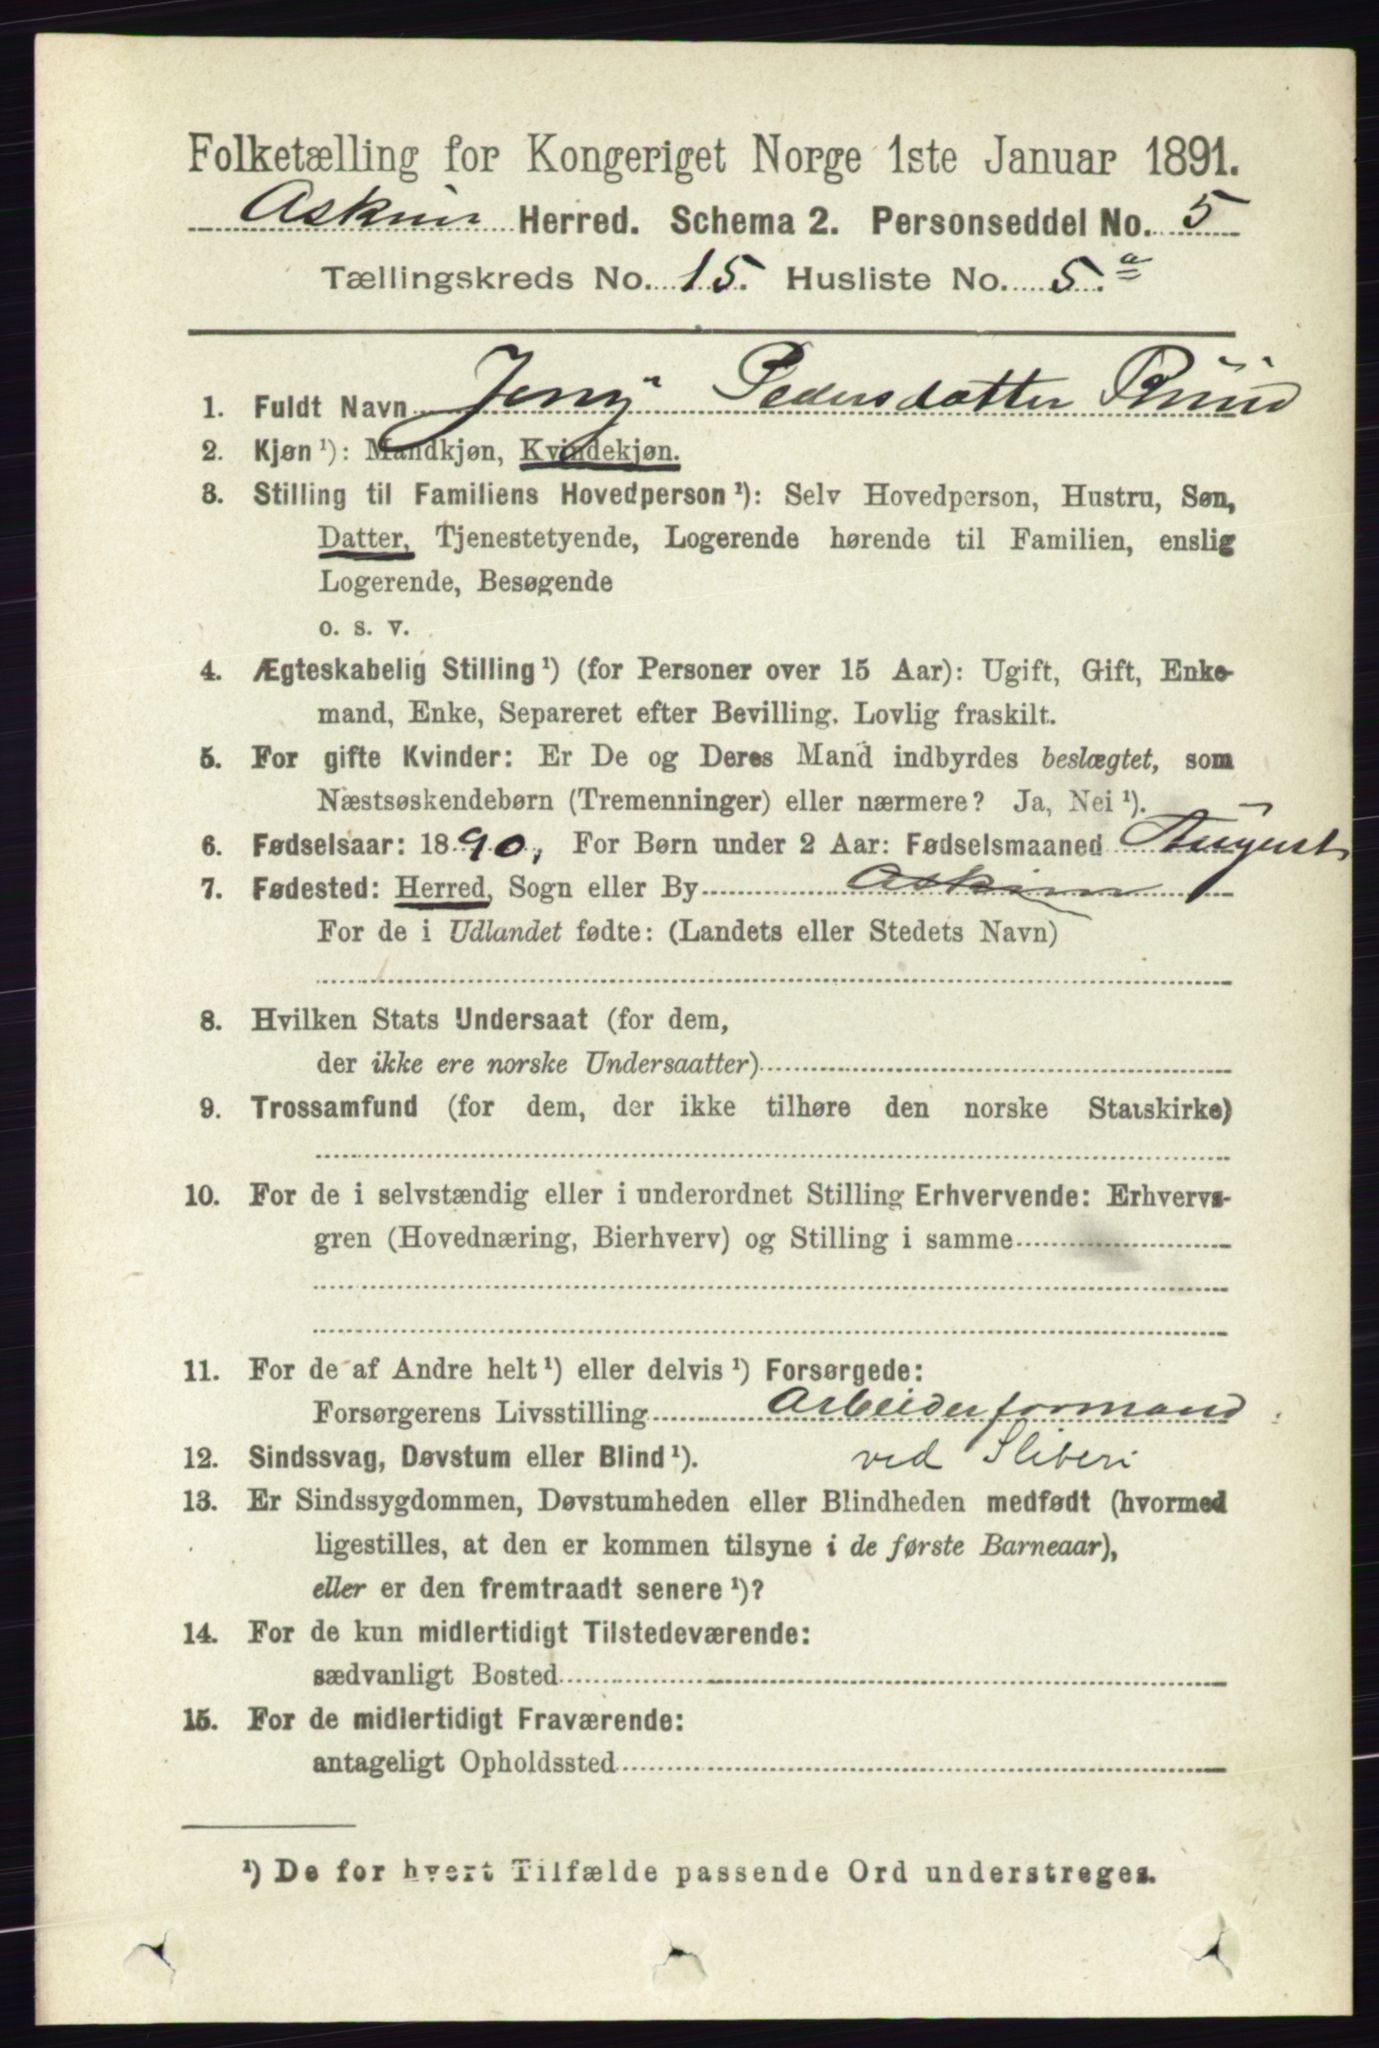 Folketælling for Kongeriget Norge 1ste Januar 1891.
Askim Herred. Schema 2. Personseddel No. 5
Tællingskreds No. 15. Husliste No. 5.a
1. Fuldt Navn Jeny Pedersdatter
2. Kjøn¹): Mandkjøn, Kvindekjøn.
3. Stilling til Familiens Hovedperson¹): Selv Hovedperson, Hustru, Søn,
Datter, Tjenestetyende, Logerende hørende til Familien, enslig
Logerende, Besøgende
o. s. v.
4. Ægteskabelig Stilling¹) (for Personer over 15 Aar): Ugift, Gift, Enke-
mand, Enke, Separeret efter Bevilling. Lovlig fraskilt.
5. For gifte Kvinder: Er De og Deres Mand indbyrdes beslægtet, som
Næstsøskendebørn (Tremenninger) eller nærmere? Ja, Nei¹).
6. Fødselsaar: 1890, For Børn under 2 Aar: Fødselsmaaned August
7. Fødested: Herred, Sogn eller By Askim
For de i Udlandet fødte: (Landets eller Stedets Navn)
8. Hvilken Stats Undersaat (for dem,
der ikke ere norske Undersaatter)
9. Trossamfund (for dem, der ikke tilhøre den norske Statskirke)
10. For de i selvstændig eller i underordnet Stilling Erhvervende: Erhvervs-
gren (Hovednæring, Bierhverv) og Stilling i samme
11. For de af Andre helt¹) eller delvis¹) Forsørgede:
Forsørgerens Livsstilling Arbeiderformand
12. Sindssvag, Døvstum eller Blind¹). ved Sliberi
13. Er Sindssygdommen, Døvstumheden eller Blindheden medfødt (hvormed
ligestilles, at den er kommen tilsyne i de første Barneaar),
eller er den fremtraadt senere¹)?
14. For de kun midlertidigt Tilstedeværende:
sædvanligt Bosted
15. For de midlertidigt Fraværende:
antageligt Opholdssted
¹) De for hvert Tilfælde passende Ord understreges.